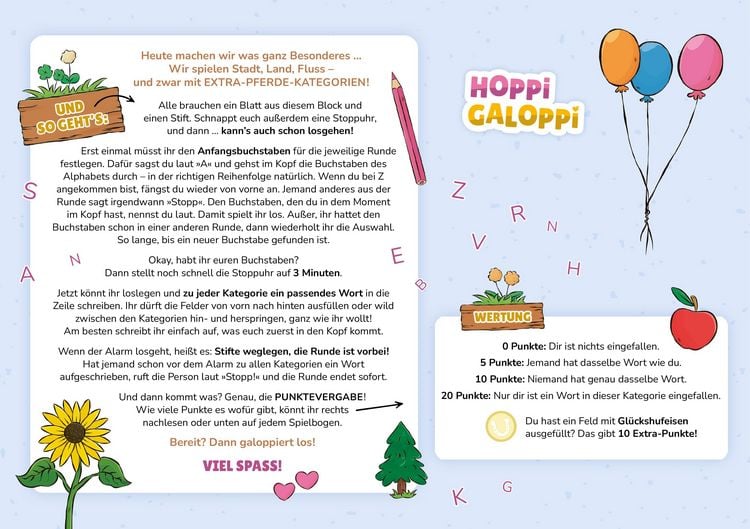 Heute machen wir was ganz Besonderes ...
Wir spielen Stadt, Land, Fluss –
und zwar mit EXTRA-PFERDE-KATEGORIEN!
UND
SO GEHT'S:
Alle brauchen ein Blatt aus diesem Block und
einen Stift. Schnappt euch außerdem eine Stoppuhr,
und dann ... kann's auch schon losgehen!
Erst einmal müsst ihr den Anfangsbuchstaben für die jeweilige Runde
festlegen. Dafür sagst du laut »A« und gehst im Kopf die Buchstaben des
Alphabets durch – in der richtigen Reihenfolge natürlich. Wenn du bei Z
angekommen bist, fängst du wieder von vorne an. Jemand anderes aus der
Runde sagt irgendwann »Stopp«. Den Buchstaben, den du in dem Moment
im Kopf hast, nennst du laut. Damit spielt ihr los. Außer, ihr hattet den
Buchstaben schon in einer anderen Runde, dann wiederholt ihr die Auswahl.
So lange, bis ein neuer Buchstabe gefunden ist.
Okay, habt ihr euren Buchstaben?
Dann stellt noch schnell die Stoppuhr auf 3 Minuten.
Jetzt könnt ihr loslegen und zu jeder Kategorie ein passendes Wort in die
Zeile schreiben. Ihr dürft die Felder von vorn nach hinten ausfüllen oder wild
zwischen den Kategorien hin- und herspringen, ganz wie ihr wollt!
Am besten schreibt ihr einfach auf, was euch zuerst in den Kopf kommt.
Wenn der Alarm losgeht, heißt es: Stifte weglegen, die Runde ist vorbei!
Hat jemand schon vor dem Alarm zu allen Kategorien ein Wort
aufgeschrieben, ruft die Person laut »Stopp!« und die Runde endet sofort.
Und dann kommt was? Genau, die PUNKTEVERGABE!
Wie viele Punkte es wofür gibt, könnt ihr rechts
nachlesen oder unten auf jedem Spielbogen.
Bereit? Dann galoppiert los!
VIEL SPASS!
S
A
N
E
B
HOPPi
GALOPPi
Z
R
N
V
H
WERTUNG
0 Punkte: Dir ist nichts eingefallen.
5 Punkte: Jemand hat dasselbe Wort wie du.
10 Punkte: Niemand hat genau dasselbe Wort.
20 Punkte: Nur dir ist ein Wort in dieser Kategorie eingefallen.
Du hast ein Feld mit Glückshufeisen
ausgefüllt? Das gibt 10 Extra-Punkte!
K
G